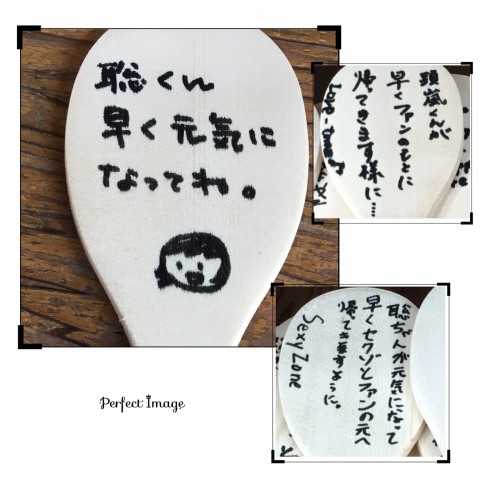 聡くん
早く元気に
なってね。
頭嵐くんが
早くファンのもとに
帰てきます様に…
Love
聡ちゃんが元気になって
早くセクゾとファンの元へ
帰ってきますように。
Sexy Zone
Perfect Image